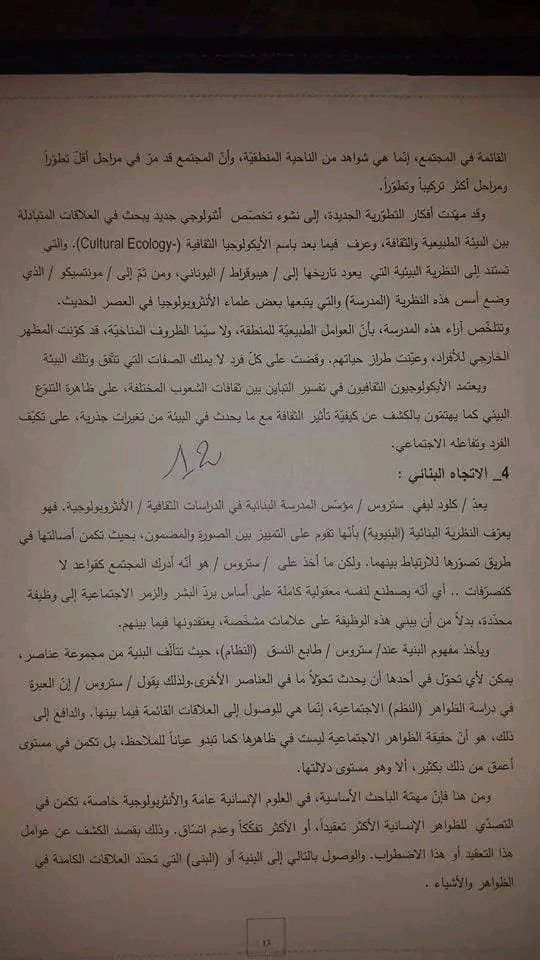 القائمة في المجتمع، إنّما هي شواهد من الناحية المنطقيّة، وأنّ المجتمع قد مرّ في مراحل أقلّ تطوّراً
ومراحل أكثر تركيباً وتطوّراً.
وقد مهّدت أفكار التطوّرية الجديدة، إلى نشوء تخصّص أثنولوجي جديد يبحث في العلاقات المتبادلة
بين البيئة الطبيعية والثقافة، وعرف فيما بعد باسم الأيكولوجيا الثقافية (Cultural Ecology-). والتي
تستند إلى النظرية البيئية التي يعود تاريخها إلى / هيبوقراط / اليوناني، ومن ثمّ إلى / مونتسيكو / الذي
وضع أسس هذه النظرية (المدرسة) والتي يتبعها بعض علماء الأنثروبولوجيا في العصر الحديث.
وتتلخّص آراء هذه المدرسة، بأنّ العوامل الطبيعيّة للمنطقة، ولا سيّما الظروف المناخيّة، قد كوّنت المظهر
الخارجي للأفراد، وعيّنت طراز حياتهم. وقضت على كلّ فرد لا يملك الصفات التي تتّفق وتلك البيئة
ويعتمد الأيكولوجيون الثقافيون في تفسير التباين بين ثقافات الشعوب المختلفة، على ظاهرة التنوّع
البيئي كما يهتمّون بالكشف عن كيفيّة تأثير الثقافة مع ما يحدث في البيئة من تغيرات جذرية، على تكيّف
الفرد وتفاعله الاجتماعي.
12
4_ الاتجاه البنائي :
يعدّ / كلود ليفي ستروس / مؤسّس المدرسة البنائية في الدراسات الثقافية / الأنثروبولوجية. فهو
يعرّف النظرية البنائية (البنيوية) بأنّها تقوم على التمييز بين الصورة والمضمون، بحيث تكمن أصالتها في
طريق تصوّرها للارتباط بينهما. ولكن ما أخذ على / ستروس / هو أنّه أدرك المجتمع كقواعد لا
كتصرّفات .. أي أنّه يصطنع لنفسه معقولية كاملة على أساس بردّ البشر والزمر الاجتماعية إلى وظيفة
محدّدة، بدلاً من أن يبني هذه الوظيفة على علامات مشخّصة، يعتقدونها فيما بينهم.
ويأخذ مفهوم البنية عند/ ستروس / طابع النسق (النظام)، حيث تتألّف البنية من مجموعة عناصر،
يمكن لأي تحوّل في أحدها أن يحدث تحوّلاً ما في العناصر الأخرى.ولذلك يقول / ستروس / إنّ العبرة
في دراسة الظواهر (النظم) الاجتماعية، إنّما هي للوصول إلى العلاقات القائمة فيما بينها. والدافع إلى
ذلك، هو أنّ حقيقة الظواهر الاجتماعية ليست في ظاهرها كما تبدو عياناً للملاحظ، بل تكمن في مستوى
أعمق من ذلك بكثير، ألا وهو مستوى دلالتها.
ومن هنا فإنّ مهمّة الباحث الأساسية، في العلوم الإنسانية عامة والأنثربولوجية خاصة، تكمن في
التصدّي للظواهر الإنسانية الأكثر تعقيداً، أو الأكثر تفكّكاً وعدم اتساق. وذلك بقصد الكشف عن عوامل
هذا التعقيد أو هذا الاضطراب. والوصول بالتالي إلى البنية أو (البنى) التي تحدّد العلاقات الكامنة في
الظواهر والأشياء .
13